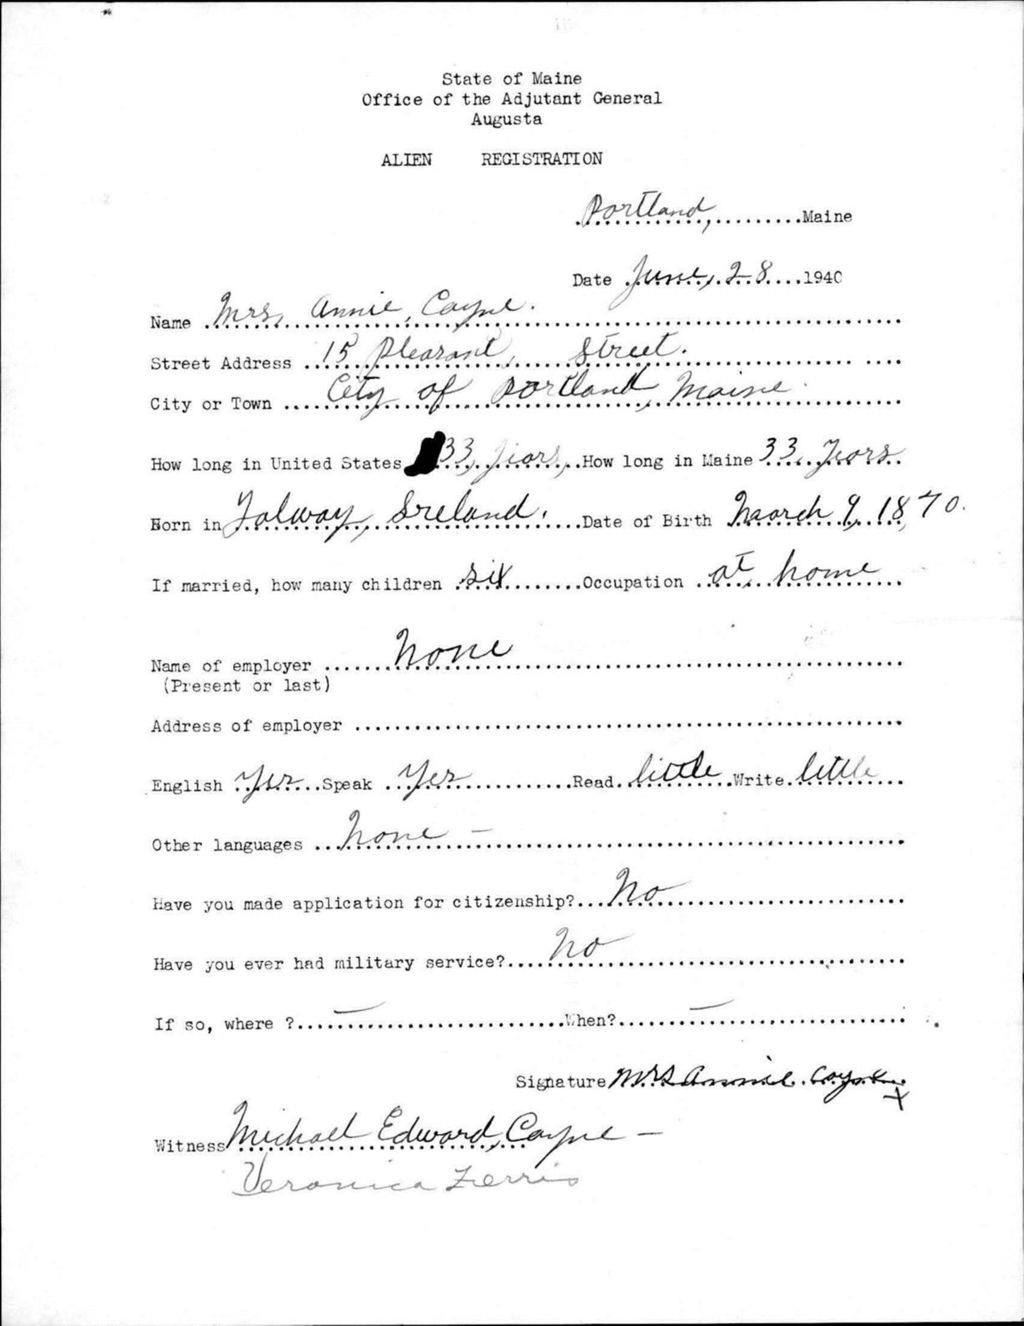 State of Maine
Office of the Adjutant General
Augusta
ALIEN REGISTRATION
Portland, Maine
Date June, 28 1940
Name Mrs, Annie, Cayne.
Street Address 15 Pleasant, Street.
City or Town City of Portland, Maine.
How long in United States 33, Years, How long in Maine 33, Years.
Born in Galway, Ireland. Date of Birth March 9, 1870.
If married, how many children six Occupation at, home
Name of employer None
(Present or last)
Address of employer
English Yes Speak Yes Read little Write little
Other languages None –
Have you made application for citizenship? No
Have you ever had military service? No
If so, where ? — When? —
Signature Mrs Annie. Cayne.
X
Witness Michael Edward, Cayne –
Veronica Ferris